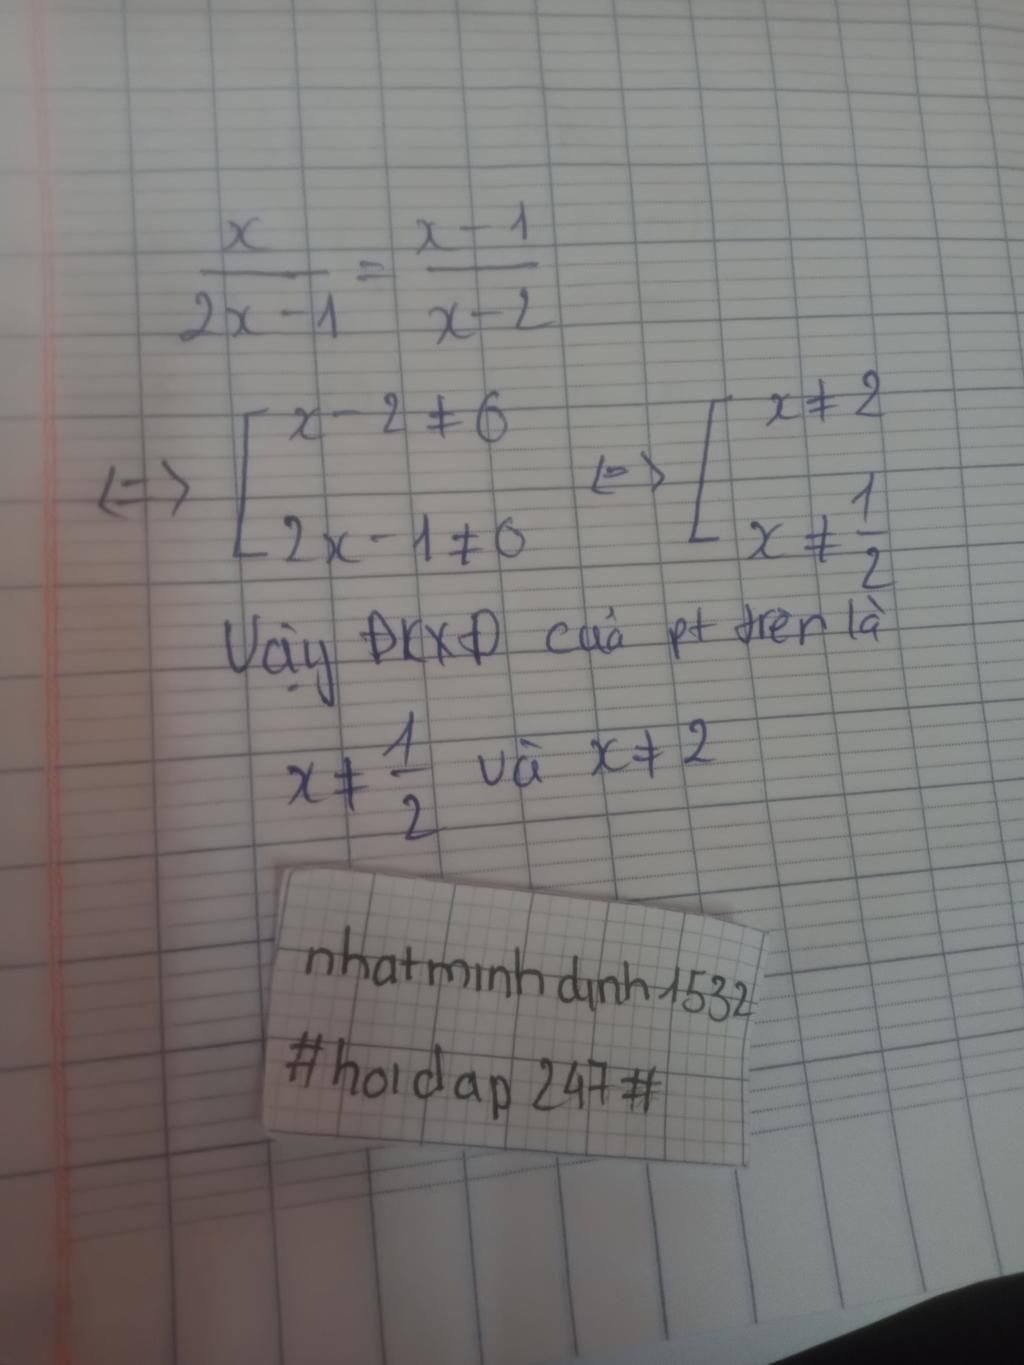 x/(2x-1) = (x-1)/(x-2)
<=> [ x-2 ≠ 0 <=> [ x ≠ 2
2x-1 ≠ 0 x ≠ 1/2
Vậy ĐKXĐ của pt trên là
x ≠ 1/2 và x ≠ 2
nhatminhdinh1532
#hoidap247#